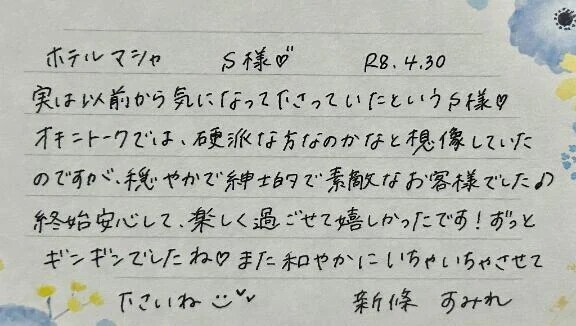 ホテルマシャ S様♡ R8.4.30
実は以前から気になって下さっていたというS様♡
オキニトークでは、硬派な方なのかなと想像していた
のですが、穏やかで紳士的で素敵なお客様でした♪
終始安心して、楽しく過ごせて嬉しかったです！ずっと
ギンギンでしたね♡また和やかにいちゃいちゃさせて
下さいね 新條 すみれ